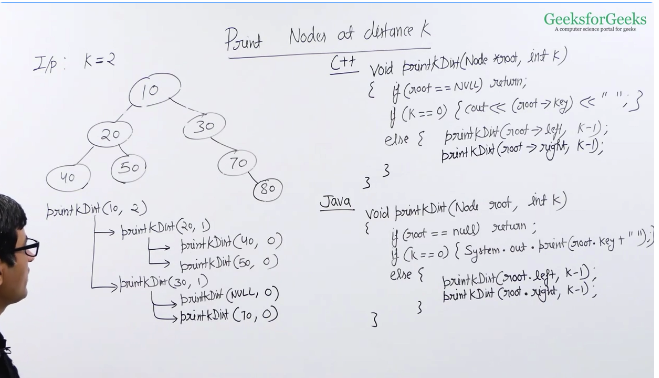 GeeksforGeeks
A computer science portal for geeks
Print Nodes at distance K
I/p: K=2
10
20
30
40
50
70
80
printKDist(10, 2)
printKDist(20, 1)
printKDist(40, 0)
printKDist(50, 0)
printKDist(30, 1)
printKDist(NULL, 0)
printKDist(70, 0)
C++
void printKDist(Node *root, int k)
{ if(root == NULL) return;
if(K==0) {cout<< (root→key) << " "; }
else { printKDist(root→left, K-1);
printKDist(root→right, K-1);
}
}
Java
void printKDist(Node root, int k)
{ if(root == null) return;
if(K==0) { System.out.print(root.key+" ");}
else {
printKDist(root.left, K-1);
printKDist(root.right, K-1);
}
}